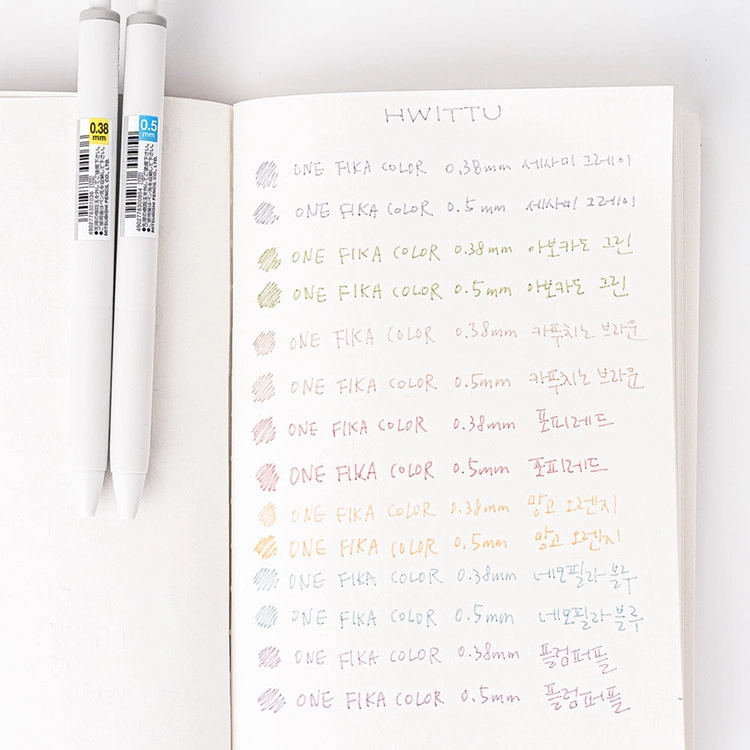 0.38
mm
0.5
mm
MITSUBISHI PENCIL CO., LTD.
MITSUBISHI PENCIL CO., LTD.
HWITTU
ONE FIKA COLOR 0.38mm 세사미 그레이
ONE FIKA COLOR 0.5mm 세사미 그레이
ONE FIKA COLOR 0.38mm 아보카도 그린
ONE FIKA COLOR 0.5mm 아보카도 그린
ONE FIKA COLOR 0.38mm 카푸치노 브라운
ONE FIKA COLOR 0.5mm 카푸치노 브라운
ONE FIKA COLOR 0.38mm 포피레드
ONE FIKA COLOR 0.5mm 포피레드
ONE FIKA COLOR 0.38mm 망고 오렌지
ONE FIKA COLOR 0.5mm 망고 오렌지
ONE FIKA COLOR 0.38mm 네모필라 블루
ONE FIKA COLOR 0.5mm 네모필라 블루
ONE FIKA COLOR 0.38mm 플럼퍼플
ONE FIKA COLOR 0.5mm 플럼퍼플